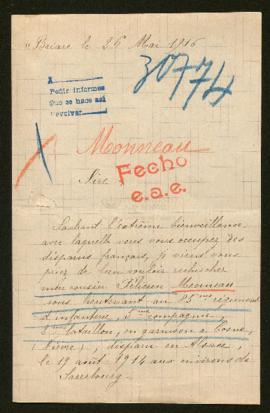 Briare le 26 Mai 1916
30774
A
Pedir informes
Que se hace así
devolver
Monneau
Fecho
e.a.e.
Sire
Sachant l'extrême bienveillance
avec laquelle vous vous occupez des
disparus français, je viens vous
prier de bien vouloir rechercher
notre cousin Félicien Monneau
sous lieutenant au 85me régiment
d'infanterie, 5me compagnie,
2me bataillon, en garnison à Cosne
(Nièvre), disparu en Alsace,
le 19 août 1914 aux environs de
Sarrebourg.